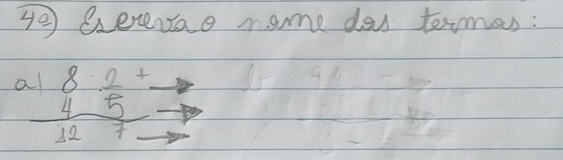 4ª) Escreva o nome dos termos:
a) 8 2 + →
4 5 →
12 7 →